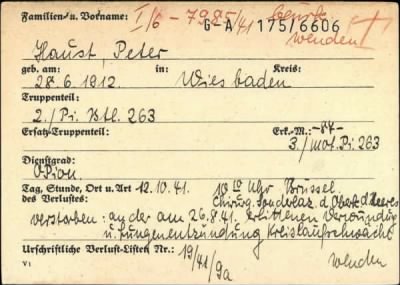 Familien- u. Vorname: I/6 - 7985/41
G-A/175/6606
wenden
Haust, Peter
geb. am: in: Kreis:
28.6.1912. Wiesbaden
Truppenteil:
2./Pi. Btl. 263
Ersatz-Truppenteil: Erk.-M.: -84-
3./mot. Pi. 263
Dienstgrad:
O'Pion.
Tag, Stunde, Ort u. Art 12.10.41. 10 10 Uhr Brüssel
des Verlustes: Chirurg. Sonderlaz. d. Oberk. d. Heeres
verstorben: an der am 26.8.41. erlittenen Verwundung
u. Lungenentzündung Kreislaufschwäche
Urschriftliche Verlust-Listen Nr.: 19/41/9a
wenden
V1